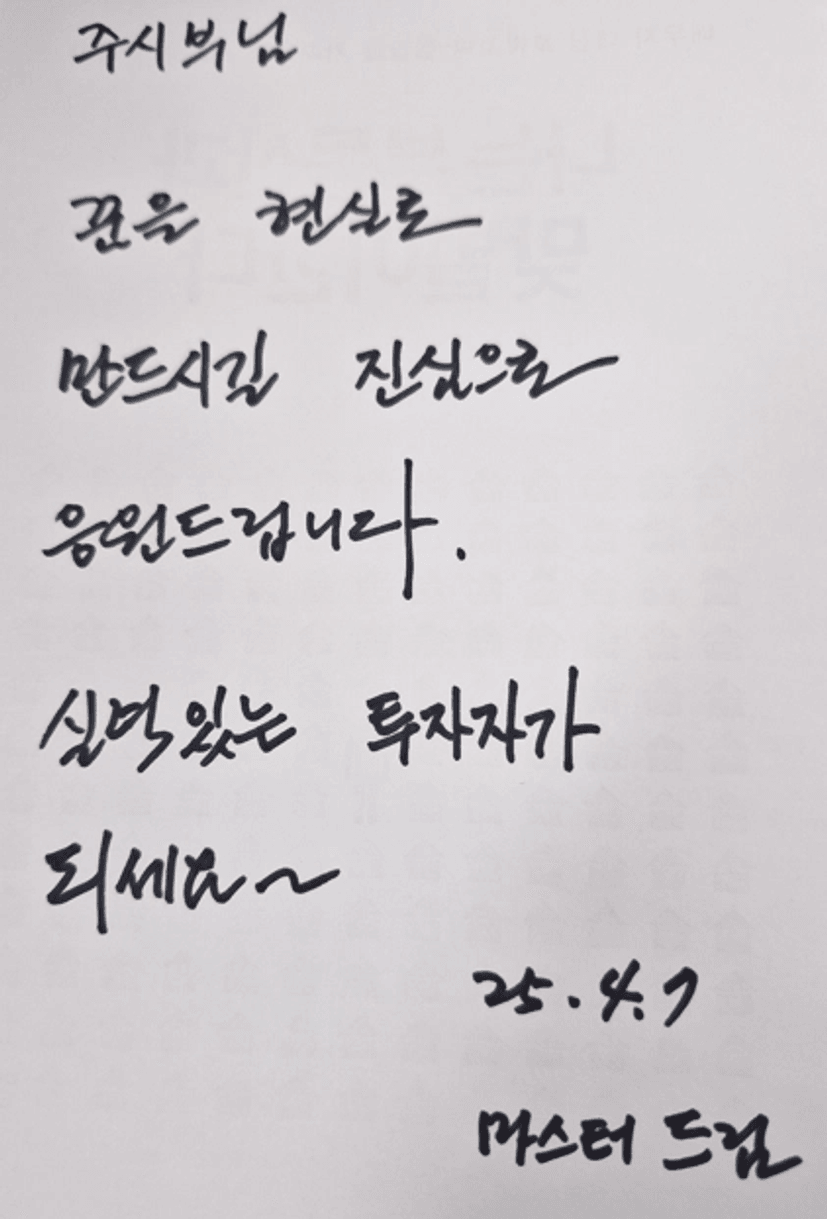 주시부님
꿈을 현실로
만드시길 진심으로
응원드립니다.
실력있는 투자자가
되세요~
25.4.7
마스터 드림